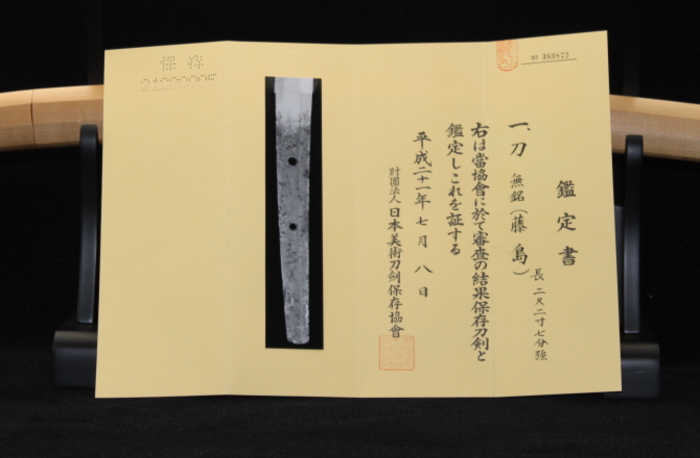 鑑定書
一、刀 無銘(藤島)
長 二尺二寸七分強
右は當協會に於て審査の結果保存刀劍と
鑑定しこれを証する
平成二十一年七月八日
財團法人日本美術刀劍保存協會
保存